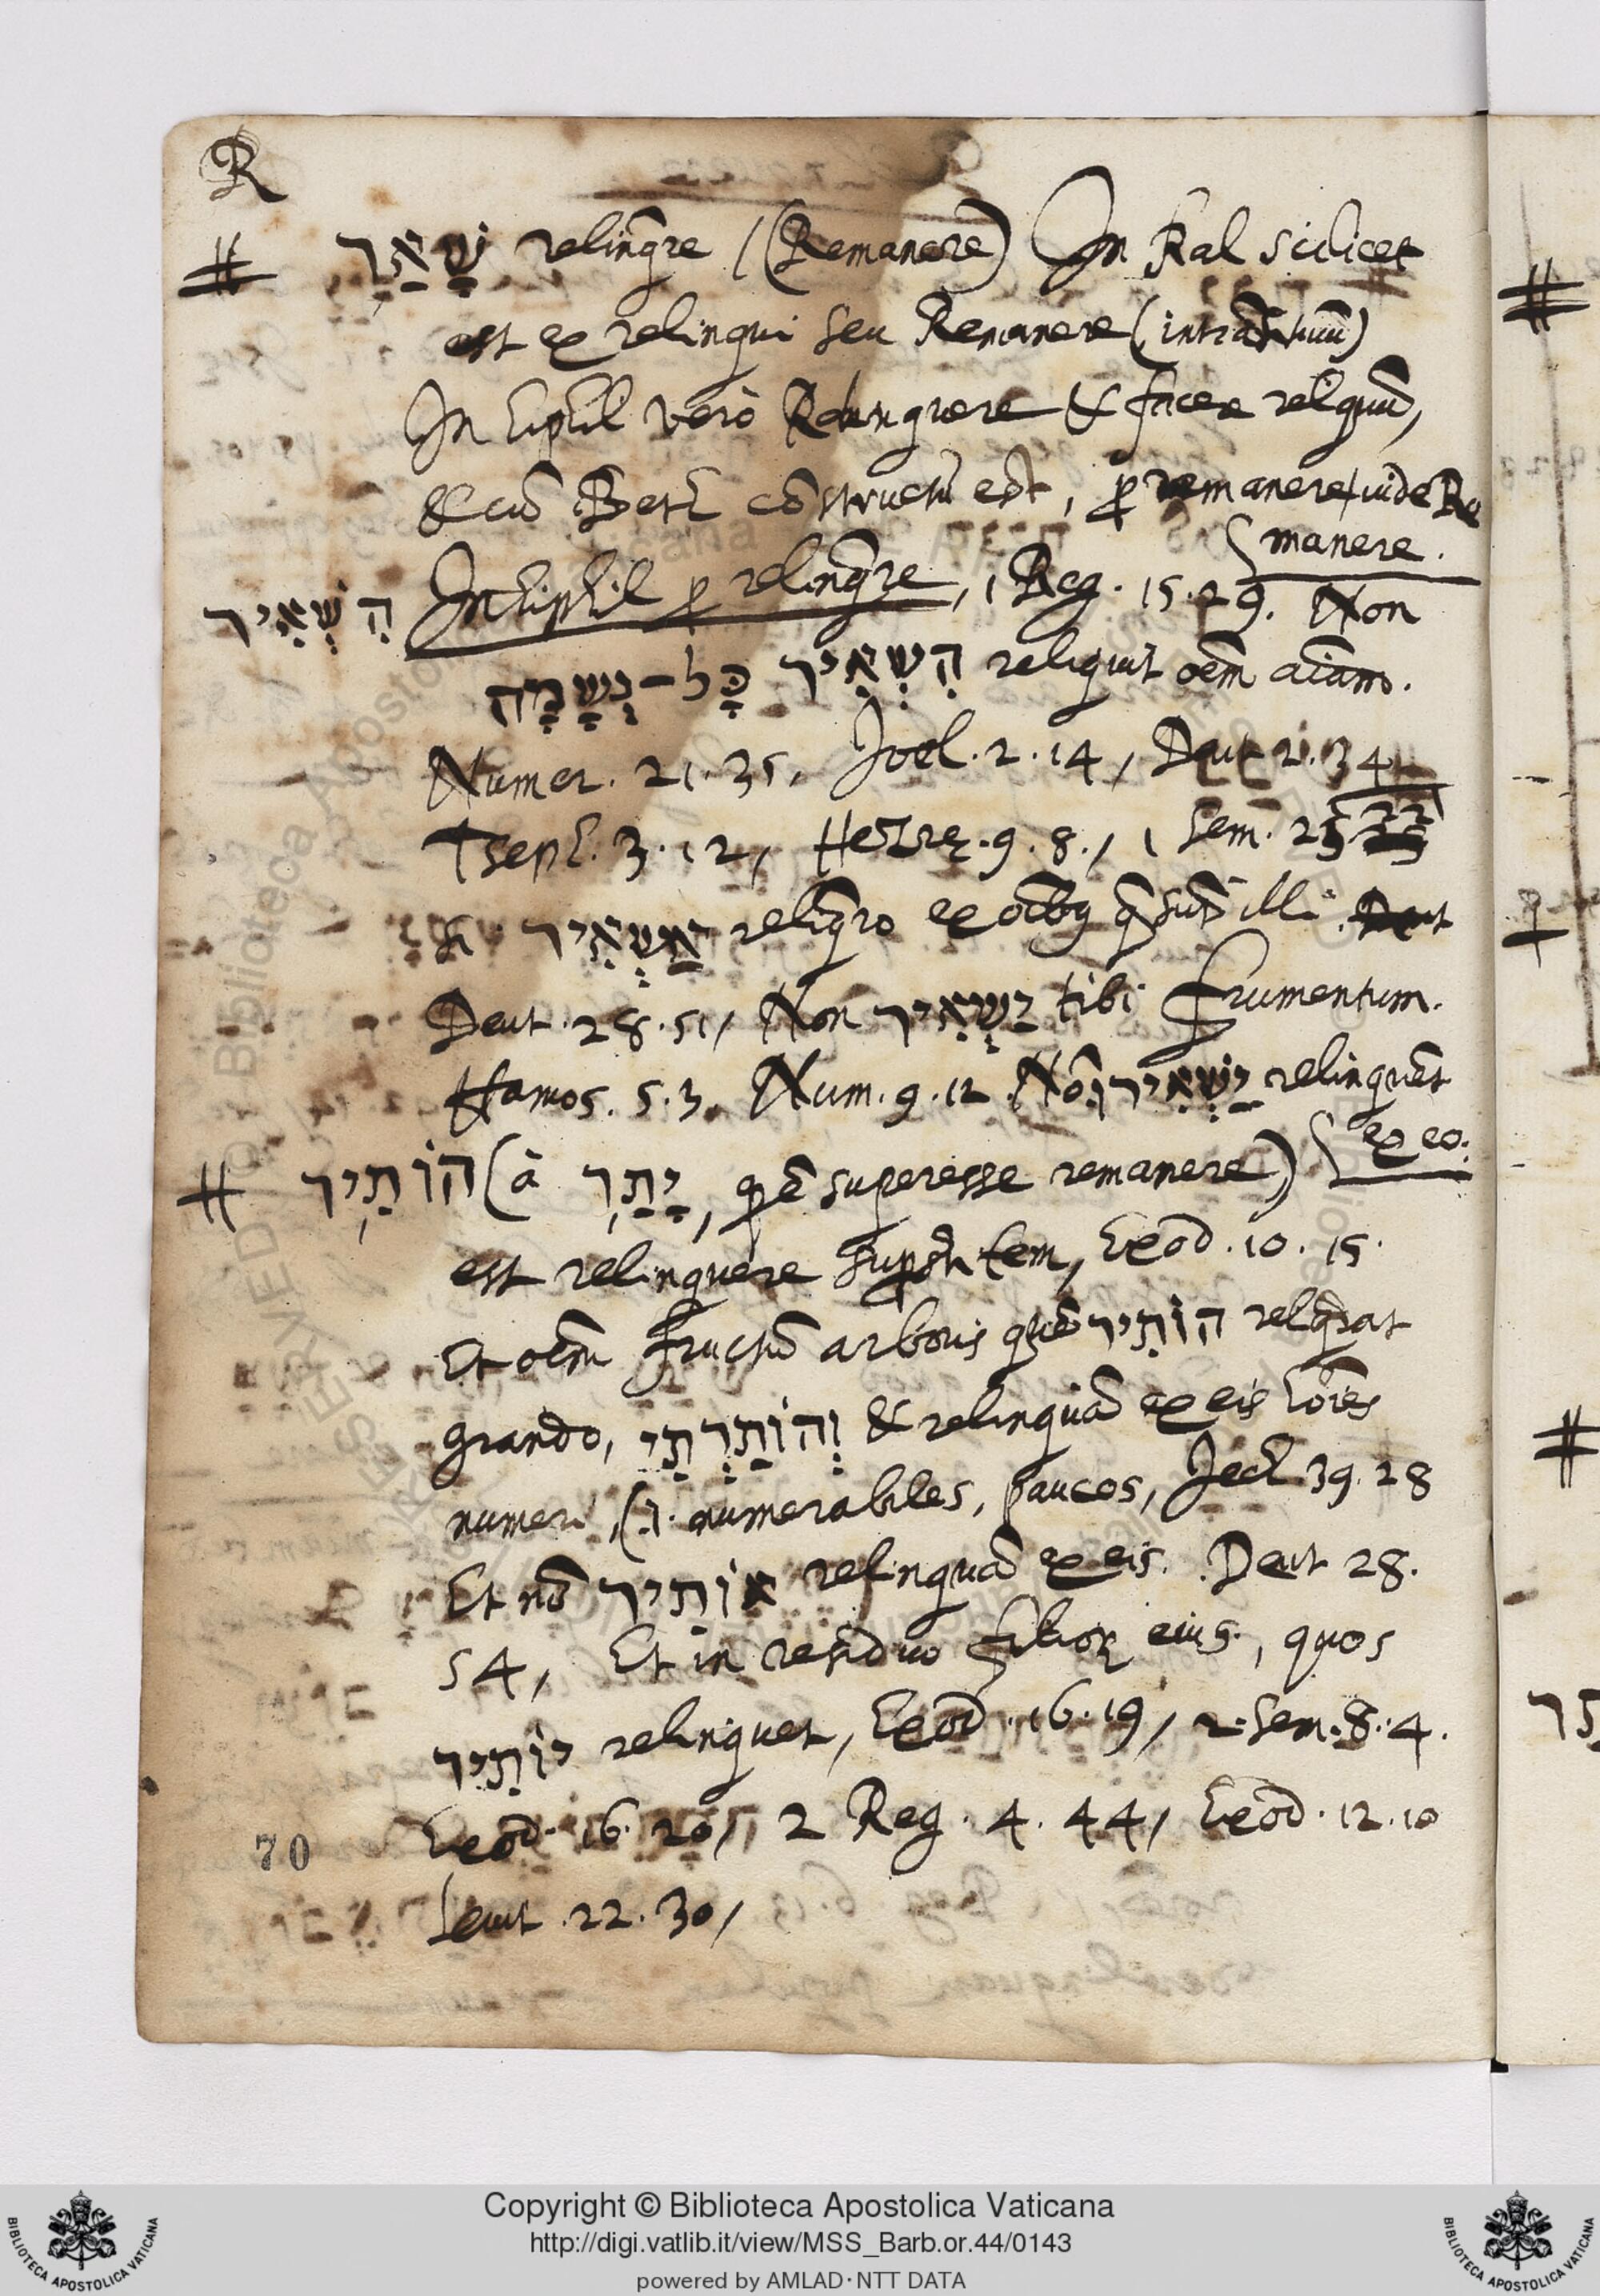 R
# שָׁאַר relinq̃re / (Remanere) In Kal scilicet
est ex relingui seu Remanere (intrãsitiuũ)
In hiphil verò Relinquere & facere reliquũ,
& cũ Beth cõstructũ est, ꝓ remanere, vide Re
manere.
הִשְׁאִיר In hiphil ꝓ relinq̃re, 1 Reg. 15. 29. Non
הִשְׁאִיר כָּל־נְשָׁמָה reliquit oẽm aĩam.
Numer. 21. 35, Joel. 2. 14, Deut 2. 34
Tseph. 3. 12, Hezrę. 9. 8., 1 Sem. 25 22
si אַשְׁאִיר reliq̃ro ex oĩbꝯ q̃ sũt illi.
Deut. 28. 51, Non יַשְׁאִיר tibi frumentum.
Hamos. 5. 3. Num. 9. 12 Nõ יַשְׁאִירוּ relinquẽt
ex eo.
# הוֹתִיר (à יָתַר, qđ ẽ superesse remanere)
est relinquere supstitem, Exod. 10. 15.
Et oẽm fructũ arboris quẽ הוֹתִיר relinq̃rat
grando, וְהוֹתַרְתִּי & relinquã ex eis hoĩes
numeri, (.i. numerabiles, paucos, Jech 39. 28
Et nõ אוֹתִיר relinquã ex eis. Deut 28.
54, Et in residuo filioꝝ eius, quos
יוֹתִיר relinquet, Exod. 16. 19, 2. Sem. 8. 4.
Exod. 16. 20, 2 Reg. 4. 44, Exod. 12. 10
70
Leuit. 22. 30,
Copyright © Biblioteca Apostolica Vaticana
http://digi.vatlib.it/view/MSS_Barb.or.44/0143
powered by AMLAD·NTT DATA